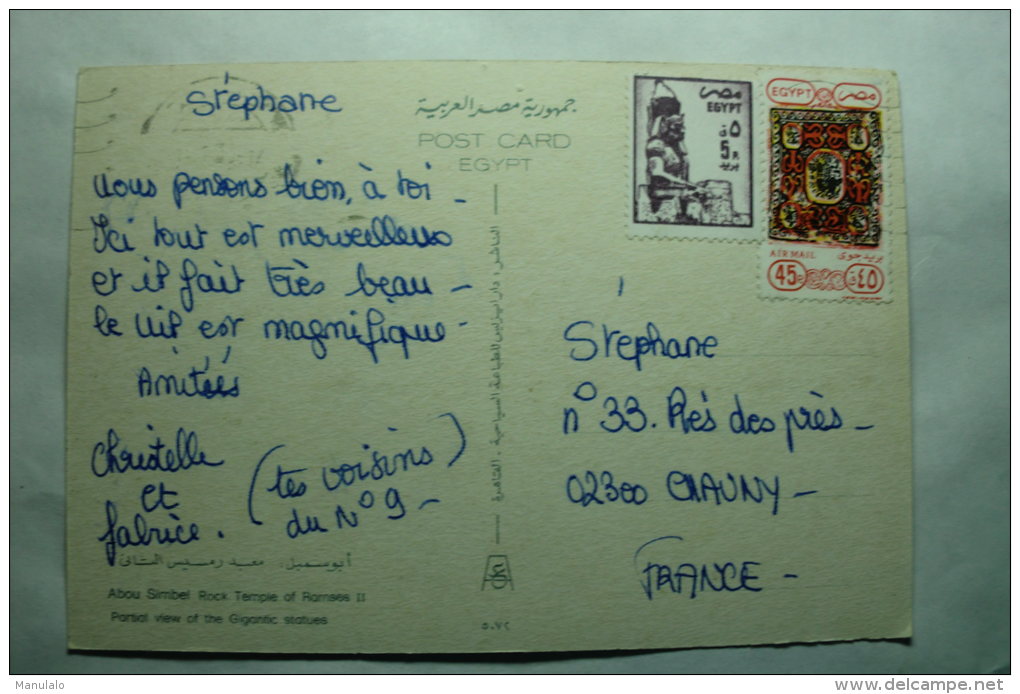 Stéphane
جمهورية مصر العربية
POST CARD
EGYPT
Nous pensons bien, à toi -
Ici tout est merveilleux
et il fait très beau -
le Nil est magnifique -
Amitiés
Christelle
et
fabrice.
(tes voisins
du N° 9 -)
أبوسمبل: معبد رمسيس الثاني
Abou Simbel Rock Temple of Ramses II
Partial view of the Gigantic statues
٥٠٧٢
مصر
EGYPT
٥
5
بريد
EGYPT مصر
AIR MAIL بريد جوى
45 ٤٥
Stéphane
n° 33. Rés des près -
02300 CHAUNY -
FRANCE -
Manulalo
www.delcampe.net